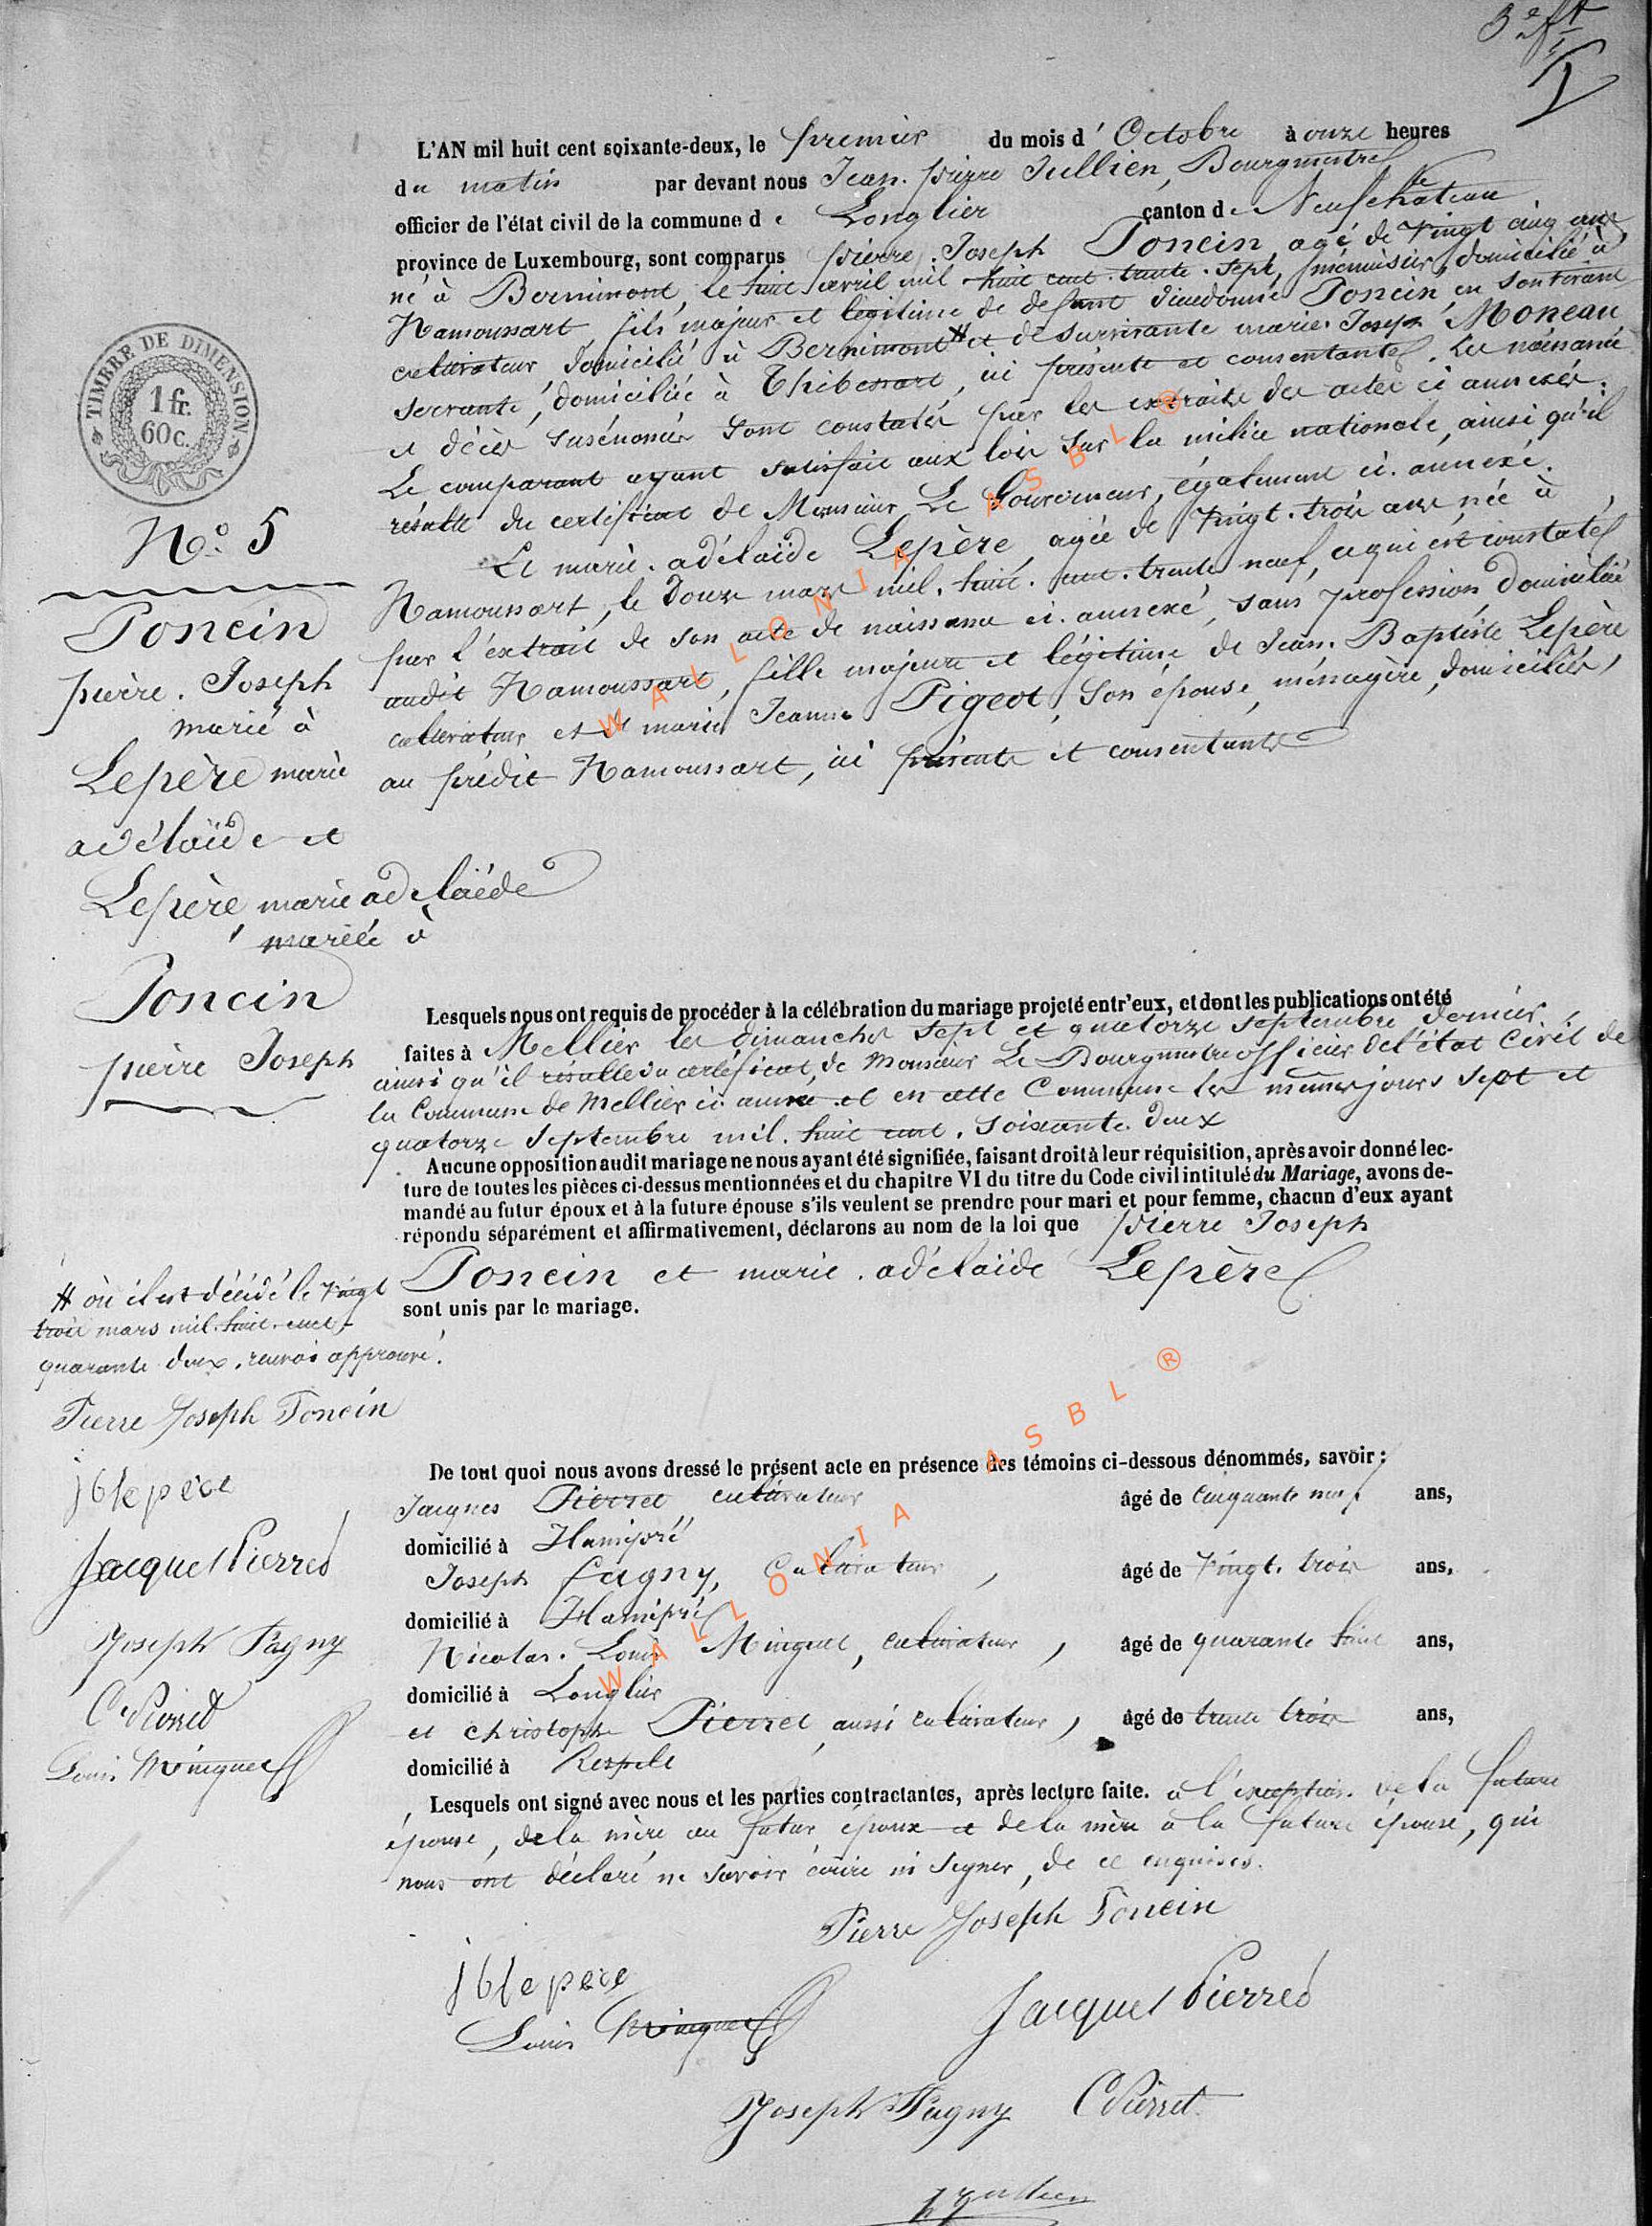 3e ft
L'AN mil huit cent soixante-deux, le premier du mois d' Octobre à onze heures
du matin par devant nous Jean. pierre Jullien, Bourgmestre
officier de l'état civil de la commune de Longlier canton de Neufchâteau
province de Luxembourg, sont comparus pierre. Joseph Poncin, agé de vingt cinq ans,
né à Bernimont, le huit avril mil huit cent. trente. sept, menuisier, domicilié à
Namoussart, fils majeur et légitime de defunt dieudonné Poncin, en son vivant
cultivateur, domicilié à Bernimont # et de survivante marie. Joseph Moneau
servante, domiciliée à Thibessart, ici présente et consentante. Les naissance
et décès susénoncés sont constatés par les extraits des actes ci annexés.
Le comparant ayant satisfait aux lois sur la milice nationale, ainsi qu'il
résulte du certificat de Monsieur Le Gouverneur, également ci. annexé.
Et marie. adélaïde Lepère, agée de vingt. trois ans née à
Namoussart, le douze mars mil. huit. cent. trente neuf, ce qui est constaté
par l'extrait de son acte de naissance ci. annexé, sans profession, domiciliée
audit Namoussart, fille majeure et légitime de Jean. Baptiste Lepère
cultivateur et de marie Jeanne Pigeot, son épouse, ménagère, domiciliés,
au prédit Namoussart, ici présents et consentants
TIMBRE DE DIMENSION
1 fr.
60 c.
No. 5
Poncin
pierre. Joseph
marié à
Lepère marie
adélaïde et
Lepère, marie adélaïde
mariée à
Poncin
pierre Joseph
Lesquels nous ont requis de procéder à la célébration du mariage projeté entr'eux, et dont les publications ont été
faites à Mellier les dimanches sept et quatorze septembre dernier,
ainsi qu'il résulte du certificat, de Monsieur Le Bourgmestre officier de l'état civil de
la Commune de Mellier ci annexé et en cette Commune les mêmes jours sept et
quatorze septembre mil. huit cent. soixante. deux
Aucune opposition audit mariage ne nous ayant été signifiée, faisant droit à leur réquisition, après avoir donné lec-
ture de toutes les pièces ci-dessus mentionnées et du chapitre VI du titre du Code civil intitulé du Mariage, avons de-
mandé au futur époux et à la future épouse s'ils veulent se prendre pour mari et pour femme, chacun d'eux ayant
répondu séparément et affirmativement, déclarons au nom de la loi que pierre Joseph
Poncin et marie. adélaïde Lepère
sont unis par le mariage.
# où il est décédé le vingt
trois mars mil. huit. cent.
quarante deux. renvoi approuvé.
Pierre Joseph Poncin
jb lepere
Jacques Pierret
Joseph Fagny
C Pierret
Louis Minguet
De tout quoi nous avons dressé le présent acte en présence des témoins ci-dessous dénommés, savoir :
Jacques Pierret cultivateur âgé de cinquante neuf ans,
domicilié à Hamipré
Joseph Fagny, Cultivateur, âgé de vingt. trois ans,
domicilié à Hamipré
Nicolas. Louis Minguet, cultivateur, âgé de quarante huit ans,
domicilié à Longlier
et christophe Pierret, aussi cultivateur, âgé de trente trois ans,
domicilié à Respelt
Lesquels ont signé avec nous et les parties contractantes, après lecture faite. à l'exception. de la future
épouse, de la mère au futur époux et de la mère à la future épouse, qui
nous ont déclaré ne savoir écrire ni signer, de ce enquises.
Pierre Joseph Poncin
jb lepere
Jacques Pierret
Louis Minguet
Joseph Fagny C Pierret
WALLONIA ASBL ®
WALLONIA ASBL ®